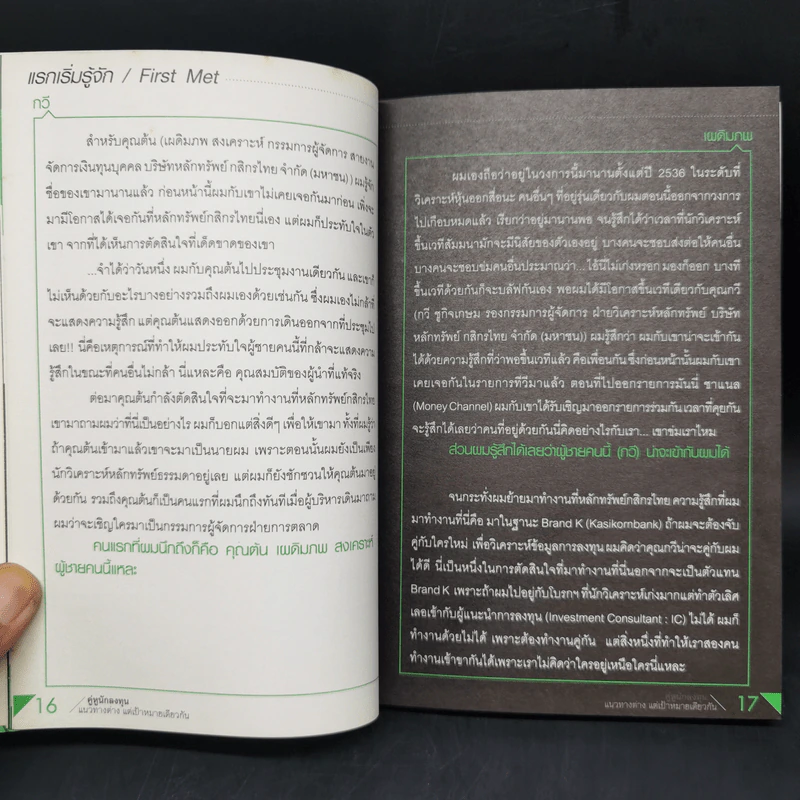 แรกเริ่มรู้จัก / First Met
กวี
สำหรับคุณต้น (เผดิมภพ สงเคราะห์ กรรมการผู้จัดการ สายงาน
จัดการเงินทุนบุคคล บริษัทหลักทรัพย์ กสิกรไทย จำกัด (มหาชน)) ผมรู้จัก
ชื่อของเขามานานแล้ว ก่อนหน้านี้ผมกับเขาไม่เคยเจอกันมาก่อน เพิ่งจะ
มามีโอกาสได้เจอกันที่หลักทรัพย์กสิกรไทยนี่เอง แต่ผมก็ประทับใจในตัว
เขา จากที่ได้เห็นการตัดสินใจที่เด็ดขาดของเขา
...จำได้ว่าวันหนึ่ง ผมกับคุณต้นไปประชุมงานเดียวกัน และเขาก็
ไม่เห็นด้วยกับอะไรบางอย่างรวมถึงผมเองด้วยเช่นกัน ซึ่งผมเองไม่กล้าที่
จะแสดงความรู้สึก แต่คุณต้นแสดงออกด้วยการเดินออกจากที่ประชุมไป
เลย!! นี่คือเหตุการณ์ที่ทำให้ผมประทับใจผู้ชายคนนี้ที่กล้าจะแสดงความ
รู้สึกในขณะที่คนอื่นไม่กล้า นี่แหละคือ คุณสมบัติของผู้นำที่แท้จริง
ต่อมาคุณต้นกำลังตัดสินใจที่จะมาทำงานที่หลักทรัพย์กสิกรไทย
เขามาถามผมว่าที่นี่เป็นอย่างไร ผมก็บอกแต่สิ่งดีๆ เพื่อให้เขามา ทั้งที่ผมรู้ว่า
ถ้าคุณต้นเข้ามาแล้วเขาจะมาเป็นนายผม เพราะตอนนั้นผมยังเป็นเพียง
นักวิเคราะห์หลักทรัพย์ธรรมดาอยู่เลย แต่ผมก็ยังชักชวนให้คุณต้นมาอยู่
ด้วยกัน รวมถึงคุณต้นก็เป็นคนแรกที่ผมนึกถึงทันทีที่เมื่อผู้บริหารเดินมาถาม
ผมว่าจะเชิญใครมาเป็นกรรมการผู้จัดการฝ่ายการตลาด
คนแรกที่ผมนึกถึงก็คือ คุณต้น เผดิมภพ สงเคราะห์
ผู้ชายคนนี้แหละ
16
คู่หูนักลงทุน
แนวทางต่าง แต่เป้าหมายเดียวกัน
เผดิมภพ
ผมเองถือว่าอยู่ในวงการนี้มานานตั้งแต่ปี 2536 ในระดับที่
วิเคราะห์หุ้นออกสื่อนะ คนอื่นๆ ที่อยู่รุ่นเดียวกับผมตอนนี้ออกจากวงการ
ไปเกือบหมดแล้ว เรียกว่าอยู่มานานพอ จนรู้สึกได้ว่าเวลาที่นักวิเคราะห์
ขึ้นเวทีสัมมนามักจะมีนิสัยของตัวเองอยู่ บางคนจะชอบส่งต่อให้คนอื่น
บางคนจะชอบข่มคนอื่นประมาณว่า...ไอ้นี่ไม่เก่งหรอก มองก็ออก บางที
ขึ้นเวทีด้วยกันก็จะบลัฟกันเอง พอผมได้มีโอกาสขึ้นเวทีเดียวกับคุณกวี
(กวี ชูกิจเกษม รองกรรมการผู้จัดการ ฝ่ายวิเคราะห์หลักทรัพย์ บริษัท
หลักทรัพย์ กสิกรไทย จำกัด (มหาชน)) ผมรู้สึกว่า ผมกับเขาน่าจะเข้ากัน
ได้ด้วยความรู้สึกที่ว่าพอขึ้นเวทีแล้ว คือเพื่อนกัน ซึ่งก่อนหน้านั้นผมกับเขา
เคยเจอกันในรายการทีวีมาแล้ว ตอนที่ไปออกรายการมันนี่ ชาแนล
(Money Channel) ผมกับเขาได้รับเชิญมาออกรายการร่วมกัน เวลาที่คุยกัน
จะรู้สึกได้เลยว่าคนที่อยู่ด้วยกันนี้คิดอย่างไรกับเรา... เขาข่มเราไหม
ส่วนผมรู้สึกได้เลยว่าผู้ชายคนนี้ (กวี) น่าจะเข้ากับผมได้
จนกระทั่งผมย้ายมาทำงานที่หลักทรัพย์กสิกรไทย ความรู้สึกที่ผม
มาทำงานที่นี่คือ มาในฐานะ Brand K (Kasikornbank) ถ้าผมจะต้องจับ
คู่กับใครใหม่ เพื่อวิเคราะห์ข้อมูลการลงทุน ผมคิดว่าคุณกวีน่าจะคู่กับผม
ได้ดี นี่เป็นหนึ่งในการตัดสินใจที่มาทำงานที่นี่นอกจากจะเป็นตัวแทน
Brand K เพราะถ้าผมไปอยู่กับโบรกฯ ที่นักวิเคราะห์เก่งมากแต่ทำตัวเลิศ
เลอเข้ากับผู้แนะนำการลงทุน (Investment Consultant : IC) ไม่ได้ ผมก็
ทำงานด้วยไม่ได้ เพราะต้องทำงานคู่กัน แต่สิ่งหนึ่งที่ทำให้เราสองคน
ทำงานเข้าขากันได้เพราะเราไม่คิดว่าใครอยู่เหนือใครนี่แหละ
คู่หูนักลงทุน
แนวทางต่าง แต่เป้าหมายเดียวกัน
17